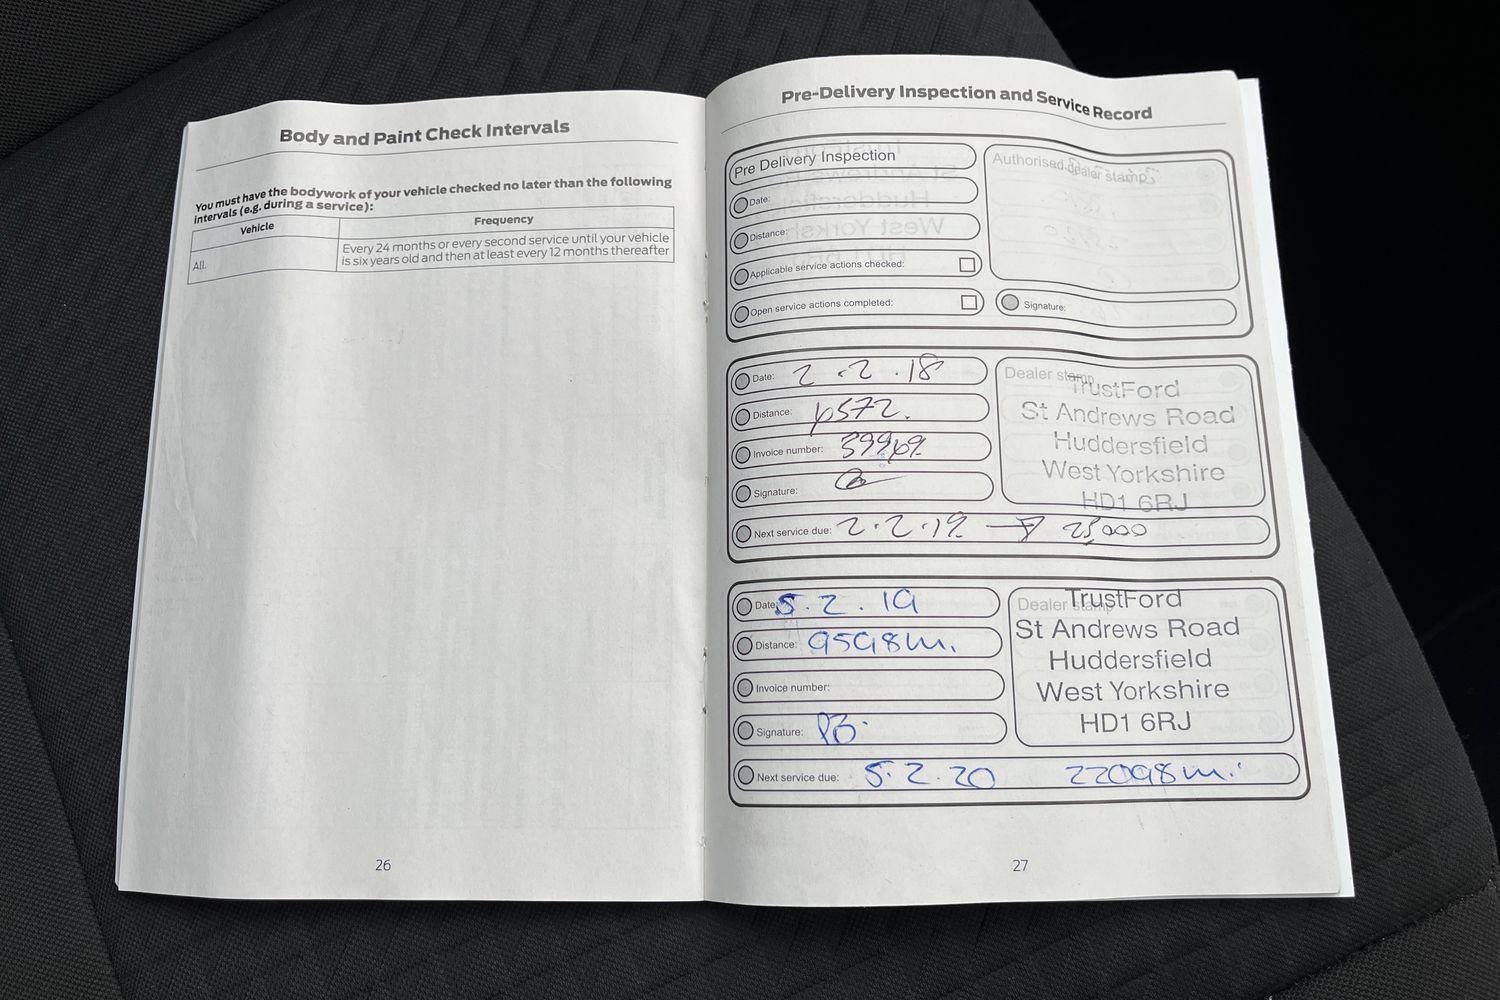 Body and Paint Check Intervals
You must have the bodywork of your vehicle checked no later than the following
intervals (e.g. during a service):
Vehicle
Frequency
All.
Every 24 months or every second service until your vehicle
is six years old and then at least every 12 months thereafter
26
Pre-Delivery Inspection and Service Record
Pre Delivery Inspection
Date:
Distance:
Applicable service actions checked:
Open service actions completed:
Authorised dealer stamp
Signature:
Date: 2.2.18
Distance:
Invoice number:
Signature:
Next service due: 2.2.19
Dealer stamp
TrustFord
St Andrews Road
Huddersfield
West Yorkshire
HD1 6RJ
Date: 5.2.19
Distance: 9598m.
Invoice number:
Signature: PB.
Next service due: 5.2.20 22098m.
Dealer stamp
TrustFord
St Andrews Road
Huddersfield
West Yorkshire
HD1 6RJ
27